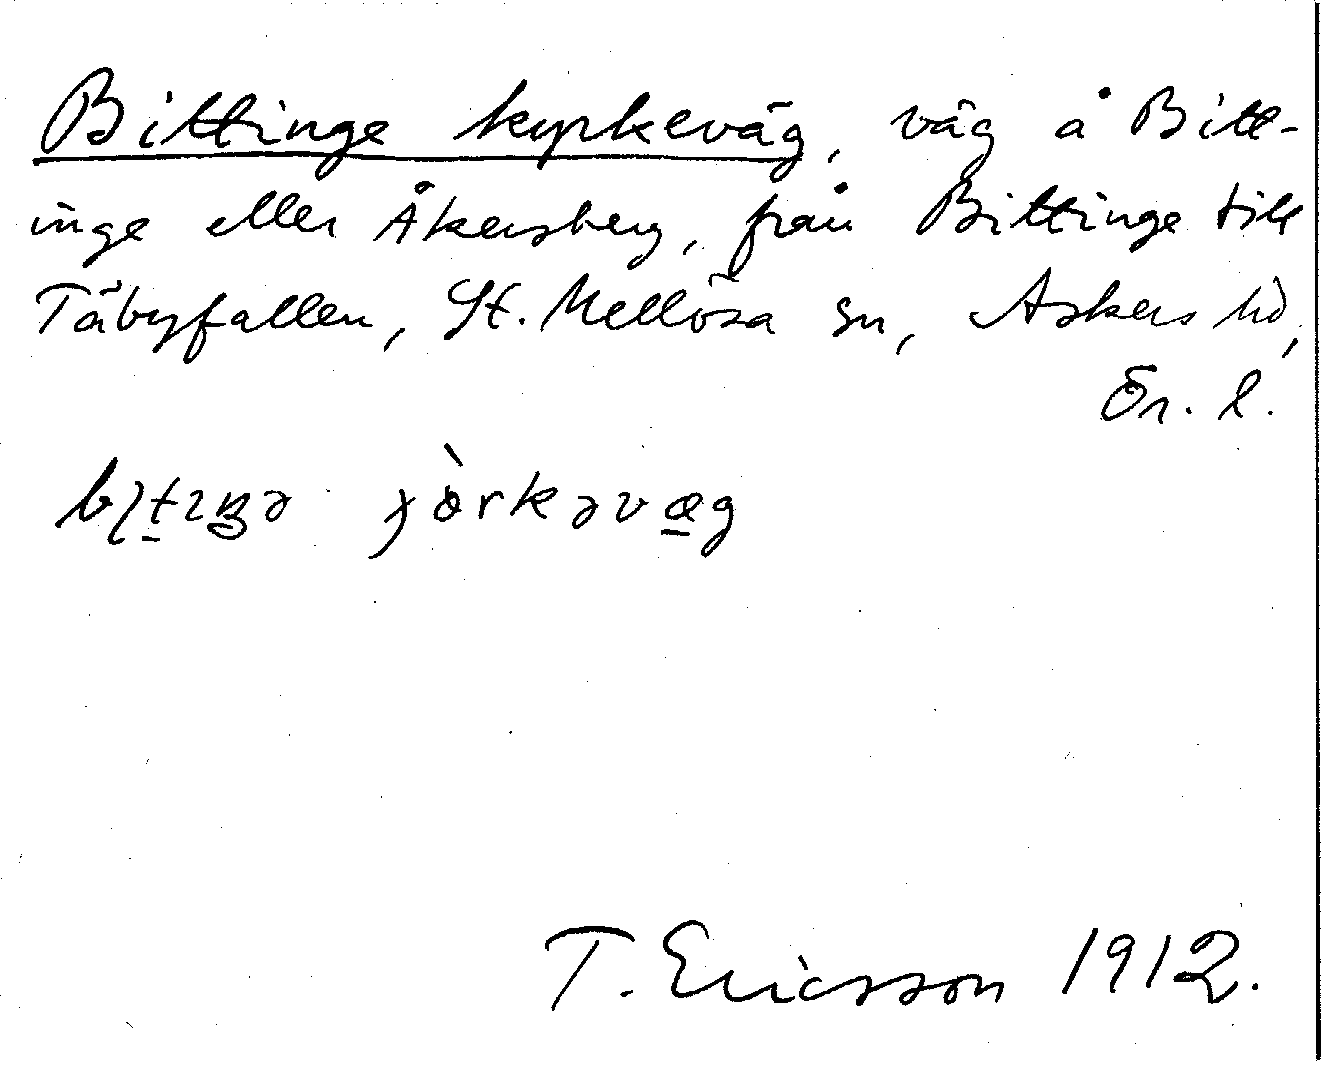 Bittinge kyrkeväg, väg å Bitt-
inge eller Åkersberg, från Bittinge till
Täbyfallen, St. Mellösa sn, Askers hd,
Ör. l.
bıt̲ıŋə ɟòrkəvæ̲g
T. Ericsson 1912.